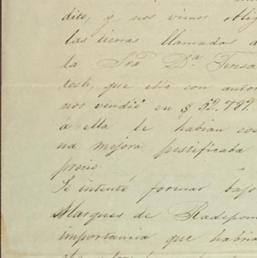 dito, y nos vimos oblig
las tierras llamada a
la Sra Da Teresa
tesh, que ella con autor
nos vendió en $ 52.787.
á ella le habian cos
na mejora justificada
precio
Se intentó formar bajo
Marques de Radepon
importancia que habria